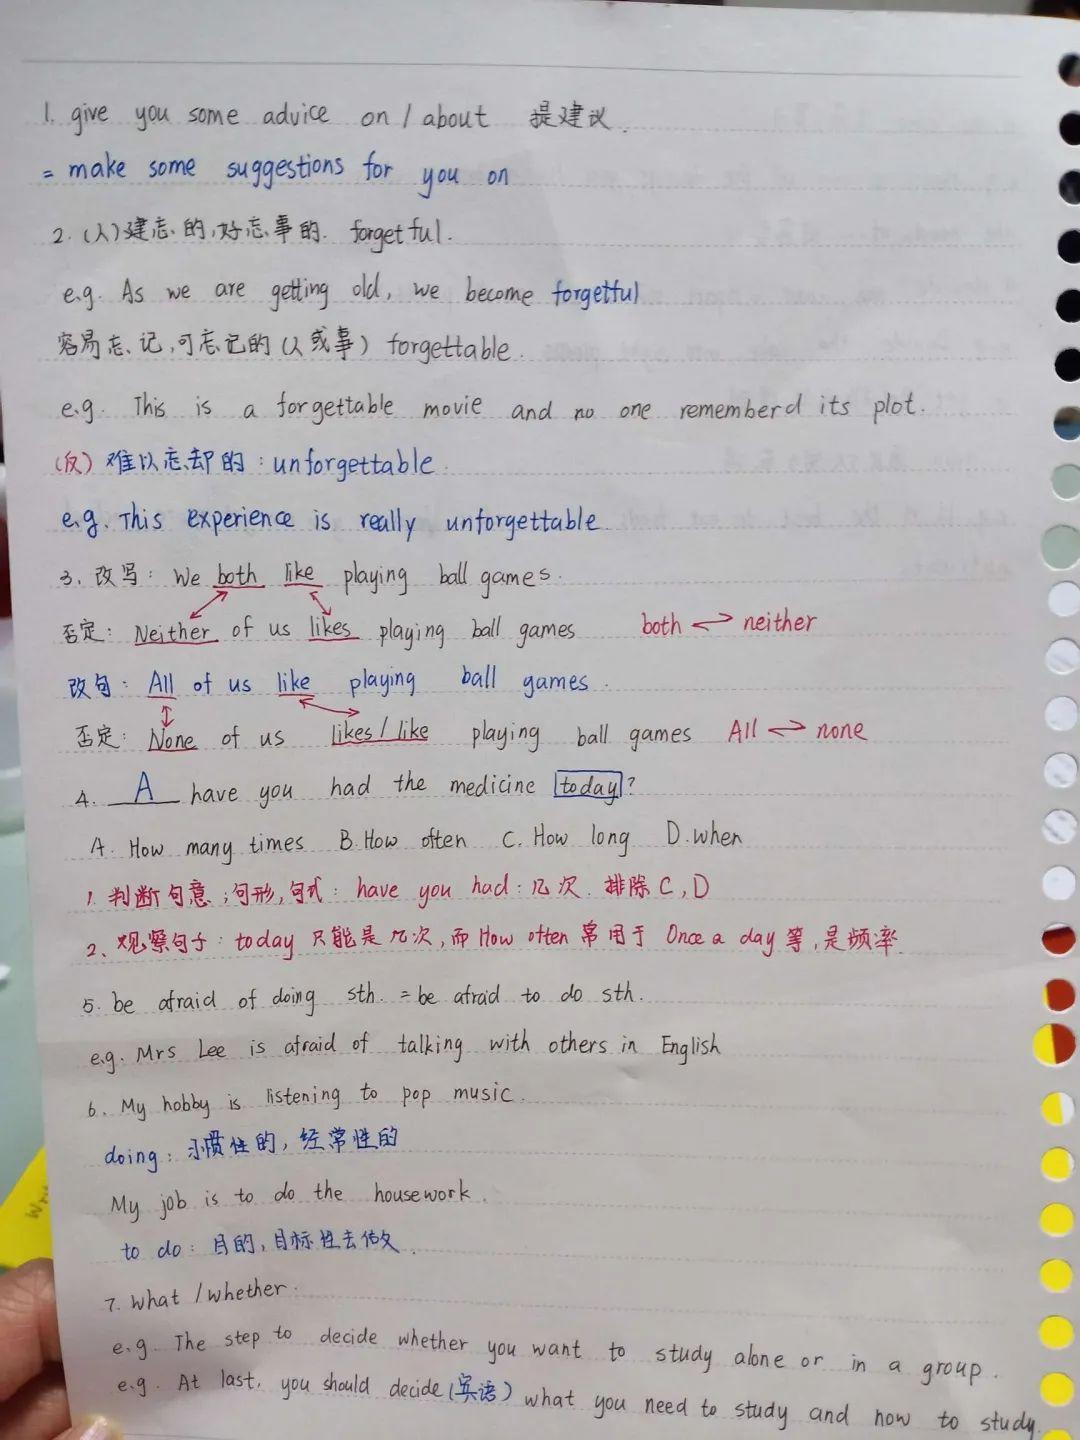 1. give you some advice on / about 提建议.
= make some suggestions for you on
2. (人)建忘的,好忘事的. forgetful.
e.g. As we are getting old, we become forgetful
容易忘记,可忘记的(人或事) forgettable.
e.g. This is a forgettable movie and no one rememberd its plot.
(反) 难以忘却的: unforgettable.
e.g. This experience is really unforgettable.
3. 改写: We both like playing ball games.
否定: Neither of us likes playing ball games both ⇌ neither
改句: All of us like playing ball games.
否定: None of us likes / like playing ball games All ⇌ none
4. A have you had the medicine today?
A. How many times B. How often C. How long D. when
1. 判断句意;句形,句式: have you had: 几次. 排除C,D
2、观察句子: today 只能是几次,而 How often 常用于 Once a day 等,是频率.
5. be afraid of doing sth. = be afraid to do sth.
e.g. Mrs Lee is afraid of talking with others in English
6. My hobby is listening to pop music.
doing: 习惯性的, 经常性的
My job is to do the housework.
to do: 目的,目标性去做.
7. What / whether.
e.g. The step to decide whether you want to study alone or in a group.
e.g. At last, you should decide (宾语) what you need to study and how to study.